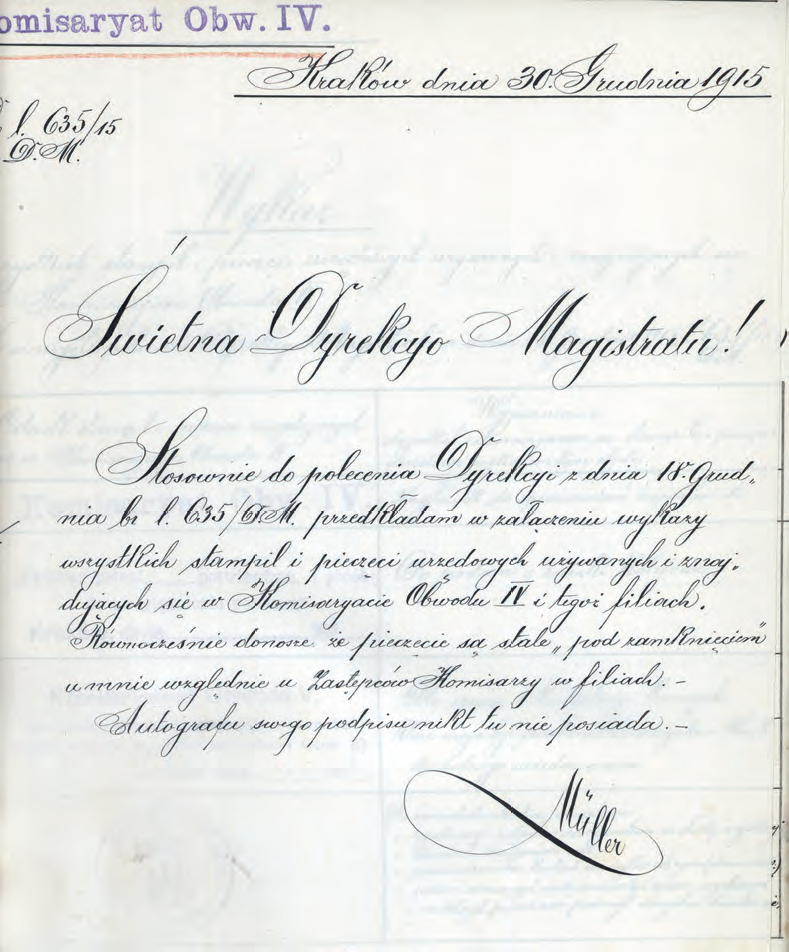 omisaryat Obw. IV.
Kraków dnia 30. Grudnia 1915
l. 635/15
D. M.
Świetna Dyrekcyo Magistratu!
Stosownie do polecenia Dyrekcyi z dnia 18. Grud„
nia br l. 635/D.M. przedkładam w załączeniu wykazy
wszystkich stampil i pieczęci urzędowych używanych i znaj„
dujących się w Komisaryacie Obwodu IV i tegoż filiach.
Równocześnie donoszę że pieczęcie są stale „pod zamknięciem"
u mnie względnie u Zastępców Komisarzy w filiach. –
Autografu swego podpisu nikt tu nie posiada. –
Müller